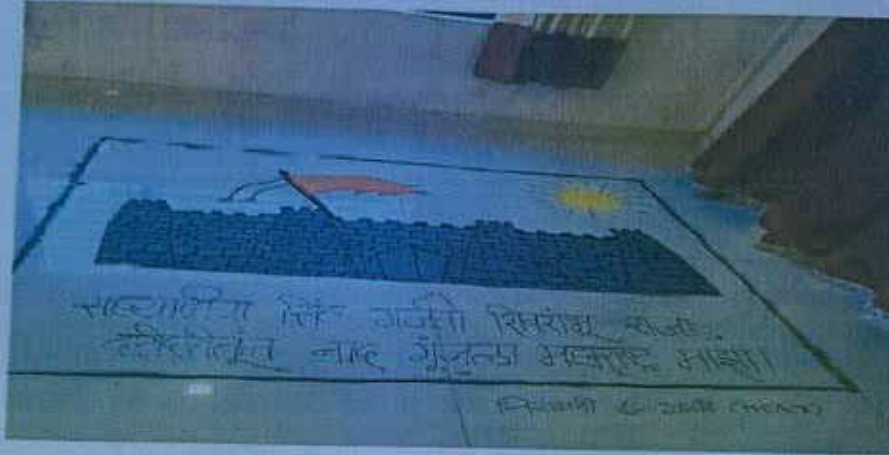 सह्याद्रीचा सिंह गर्जतो शिवशंभू राजा
दरीदरीतून नाद गुंजला महाराष्ट्र माझा।